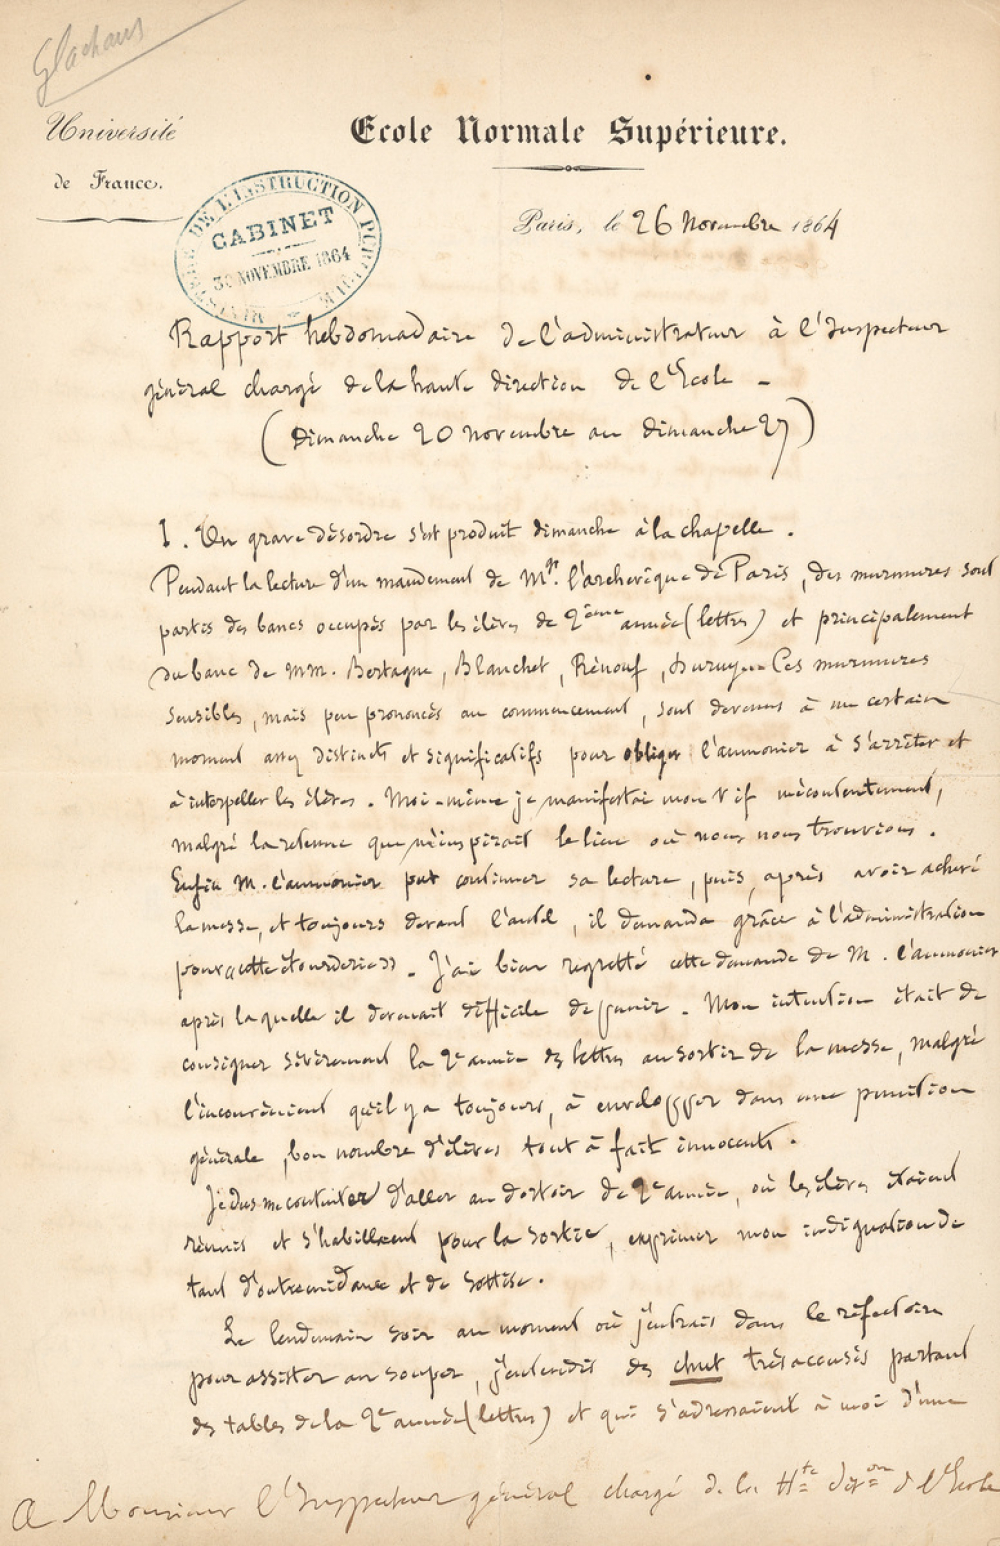 Glachant
Université
de France.
Ecole Normale Supérieure.
MINISTÈRE DE L'INSTRUCTION PUBLIQUE
CABINET
30 NOVEMBRE 1864
Paris, le 26 Novembre 1864
Rapport hebdomadaire de l'administrateur à l'Inspecteur
général chargé de la haute direction de l'École -
(Dimanche 20 novembre au dimanche 27)
I. Un grave désordre s'est produit dimanche à la chapelle.
Pendant la lecture d'un mandement de Mgr. l'archevêque de Paris, des murmures sont
partis des bancs occupés par les élèves de 2ème année (lettres) et principalement
du banc de MM. Bertagne, Blanchet, Rénouf, Duruy. Ces murmures
sensibles, mais peu prononcés au commencement, sont devenus à un certain
moment assez distincts et significatifs pour obliger l'aumonier à s'arrêter et
à interpeller les élèves. Moi-même je manifestai mon vif mécontentement,
malgré la retenue que m'inspirait le lieu où nous nous trouvions.
Enfin M. l'aumonier put continuer sa lecture, puis, après avoir achevé
la messe, et toujours devant l'autel, il demanda grâce à l'administration
pour «cette étourderie». J'ai bien regretté cette demande de M. l'aumonier
après laquelle il devenait difficile de punir. Mon intention était de
consigner sévèrement la 2e année des lettres au sortir de la messe, malgré
l'inconvénient qu'il y a toujours, à envelopper dans une punition
générale, bon nombre d'élèves tout à fait innocents.
Je dus me contenter d'aller au dortoir de 2e année, où les élèves étaient
réunis et s'habillaient pour la sortie, exprimer mon indignation de
tant d'outrecuidance et de sottise.
Le lendemain soir au moment où j'entrais dans le réfectoire
pour assister au souper, j'entendis des chut très accusés partant
des tables de la 2e année (lettres) et qui s'adressaient à moi d'une
A Monsieur l'Inspecteur général chargé de la Hte dir.on de l'Ecole